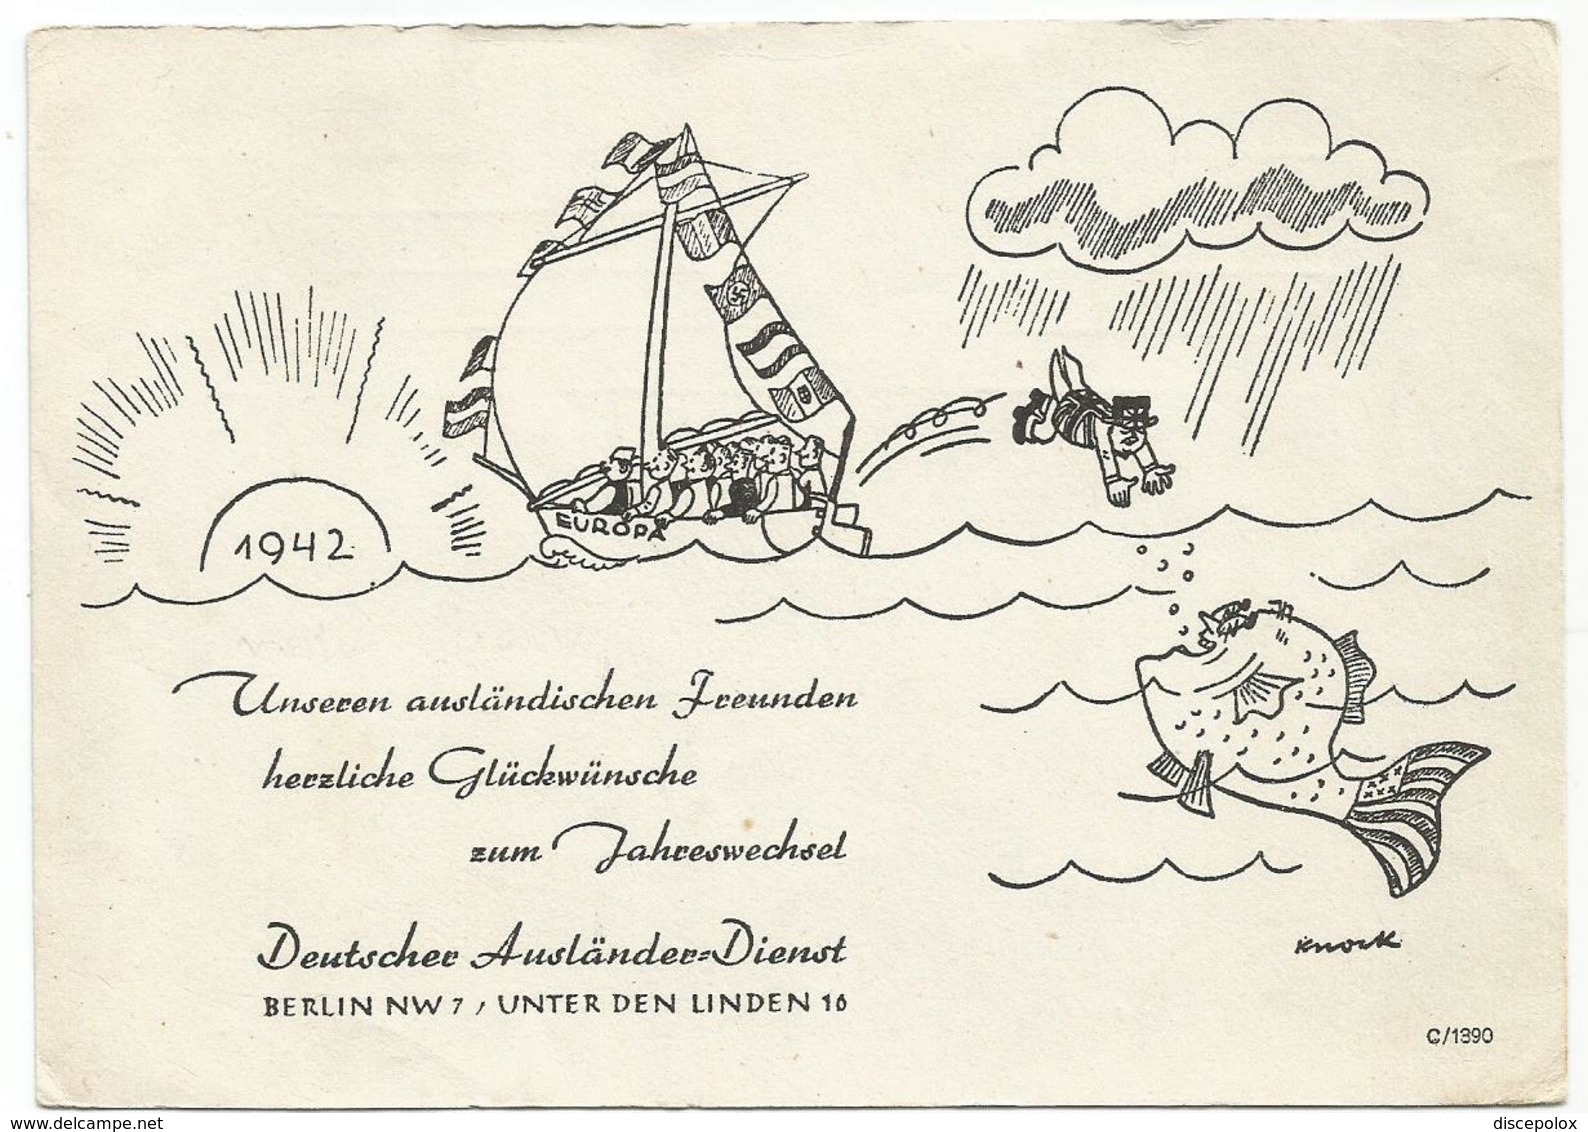 1942
EUROPA
Unseren ausländischen Freunden
herzliche Glückwünsche
zum Jahreswechsel
Deutscher Ausländer=Dienst
BERLIN NW 7, UNTER DEN LINDEN 16
Knock
C/1390
www.delcampe.net
discepolox